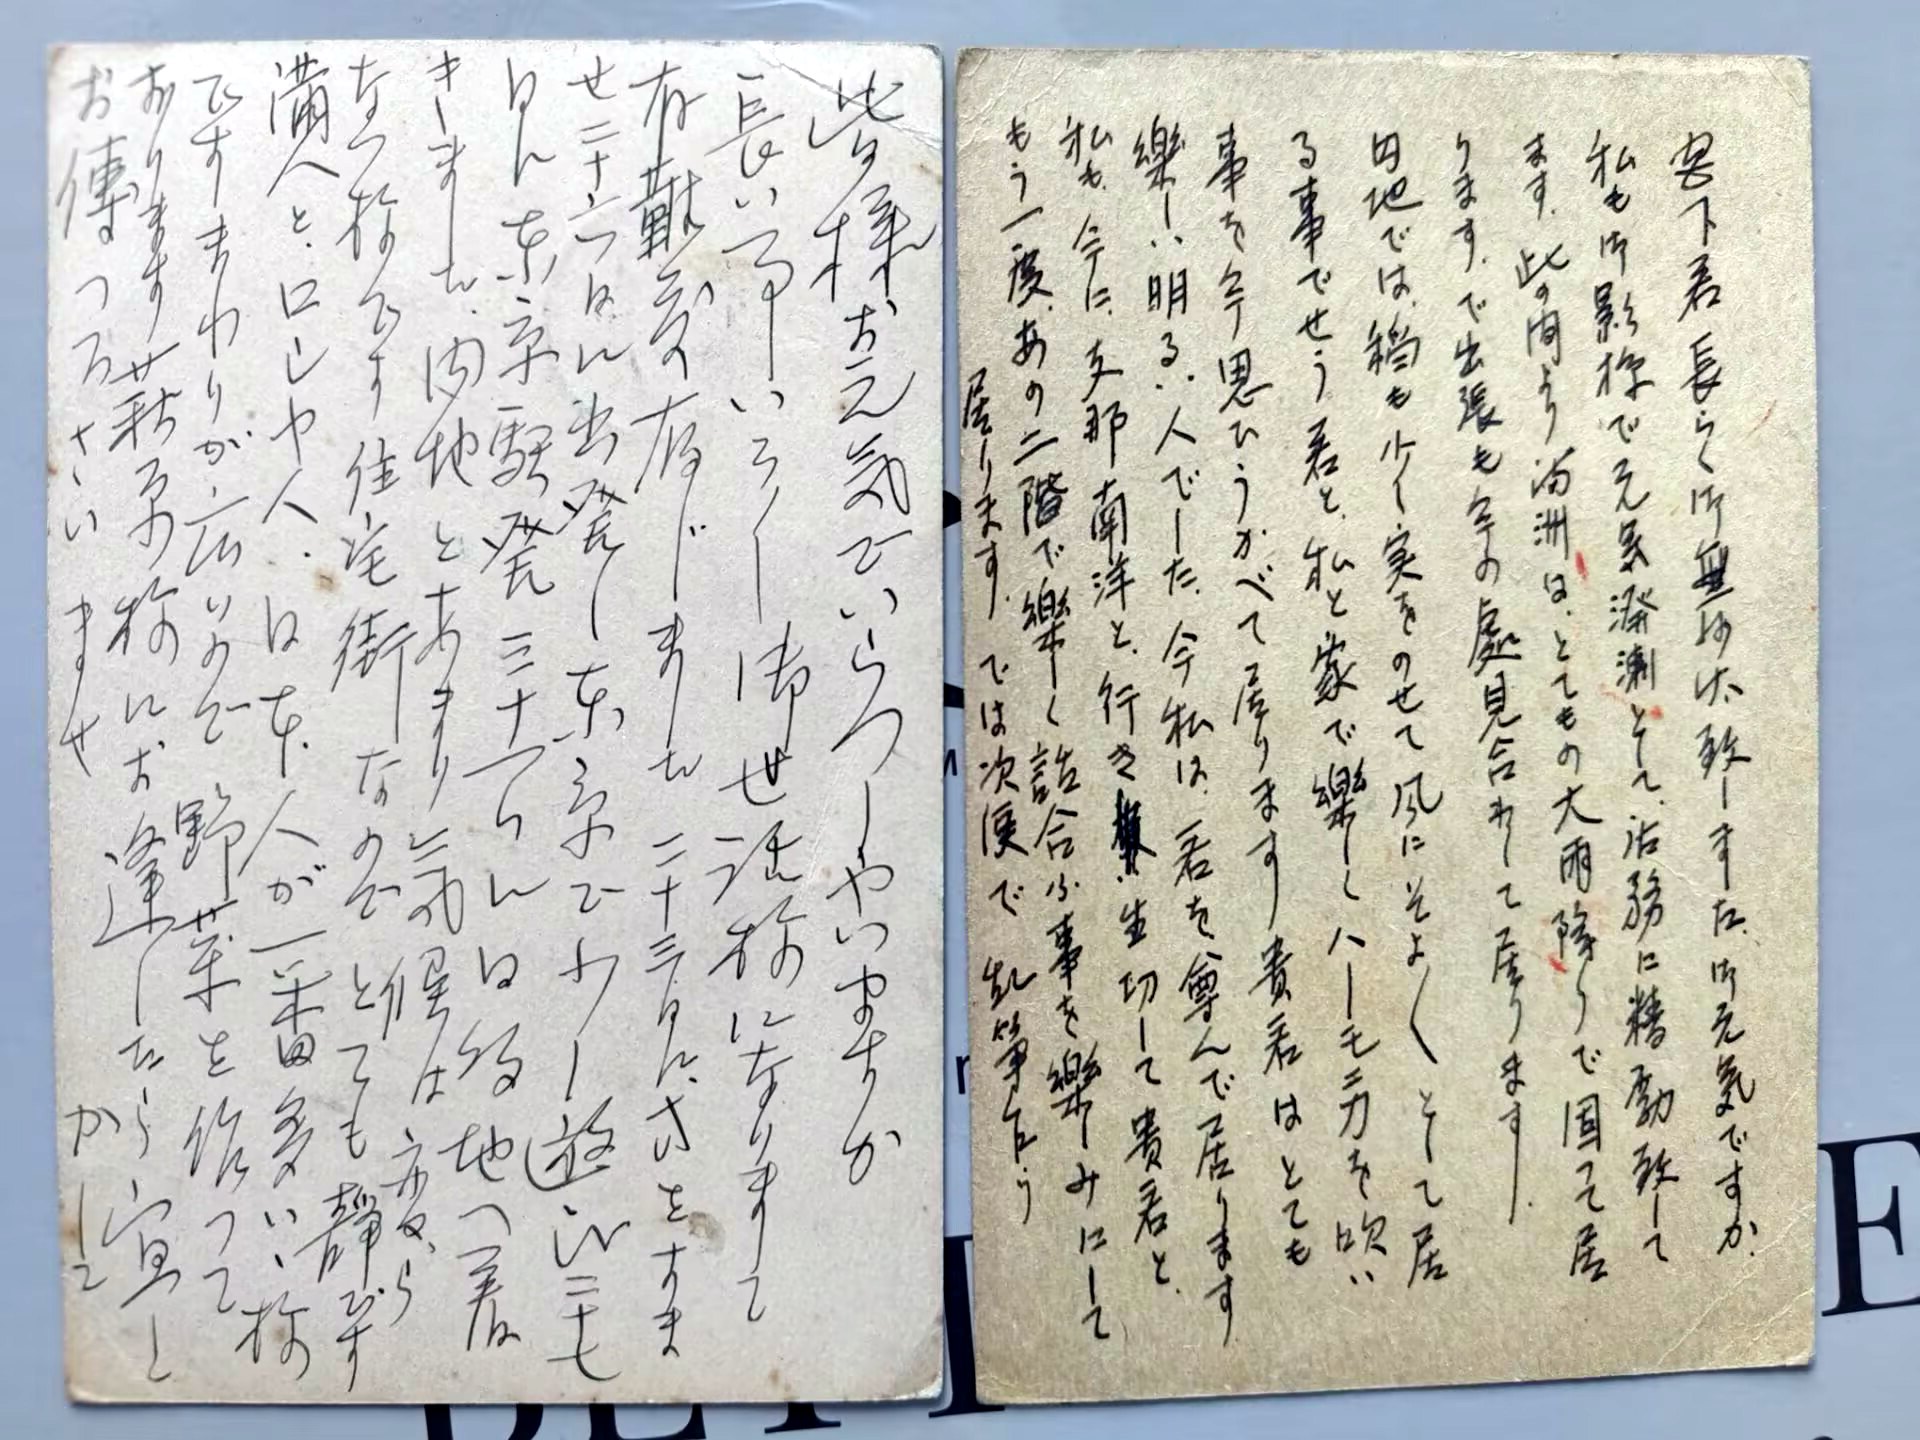 皆様お元気でいらつしやいますか
長い間いろ〱御世話様になりまして
有難う存じました 二十三日にさとすま
せ二十六日に出発し東京で少し遊び二十七
日に東京駅発三十一日に当地へ着
きました 内地とあまり気候は変ら
ない様です 住宅街なのでとても静です
満人と、ロシヤ人、日本人が一番多い様
ですまわりが広いので野菜を作つて
おります 萩原様にお逢ひしたら宜しく
お傳へ下さいませ かしこ
宮下君長らく御無沙汰致しました。御元気ですか。
私も御影様で元気溌溂として、法務に精励致して
ます。此の間より満洲は、とてもの大雨降りで困つて居
ります。で出張も今の處見合わして居ります
内地では、稲も少し実をのせて風にそよ〱として居
る事でせう 君と、私と家で樂しくハーモニカを吹い
事を今思ひうかべて居ります 貴君はとても
樂しい明るい人でした。今私は、君を尊んで居ります
私も、今に、支那 南洋と、行き 生切して貴君と、
もう一度、あの二階で樂しく話合ふ事を樂しみにして
居ります。では次便で 乱筆乍ら